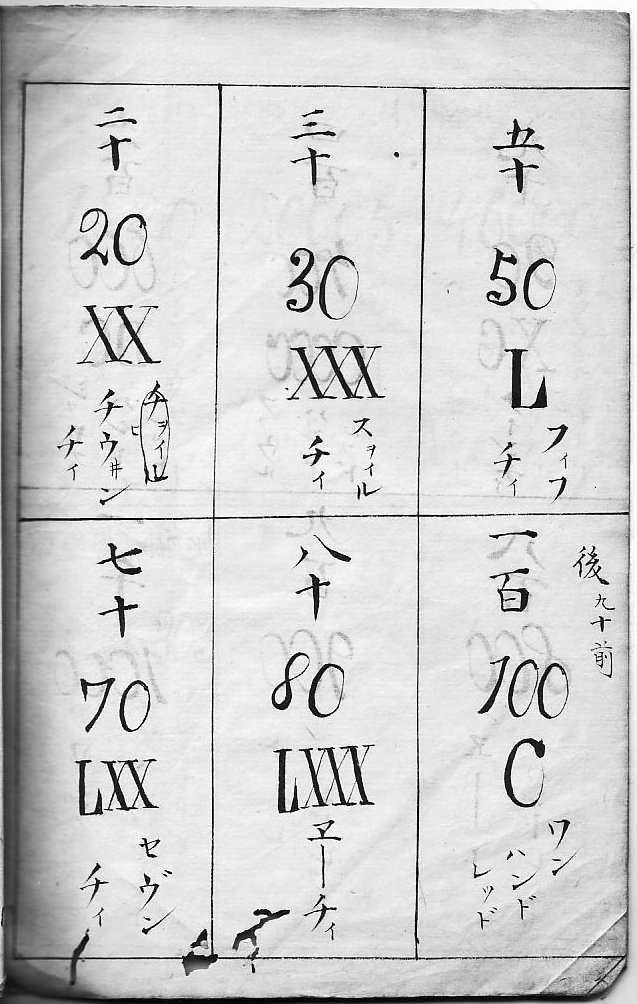 五十
50
L
フィフ
チィ
三十
30
XXX
スヲイル
チィ
二十
20
XX
チヲイル
ヒ
チウヰン
チィ
後九十前
一百
100
C
ワン
ハンド
レッド
八十
80
LXXX
ヱーチィ
七十
70
LXX
セヴン
チィ